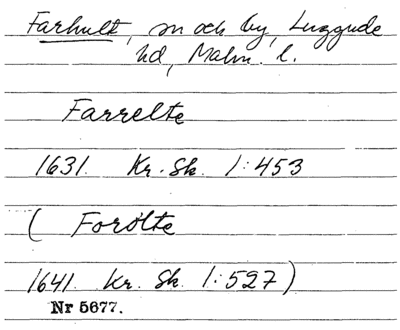 Farhult, sn och by, Luggude
hd, Malm. l.
Farrelte
1631. Kr. Sk. 1:453
( Forölte
1641. Kr. Sk. 1:527)
Nr 5677.